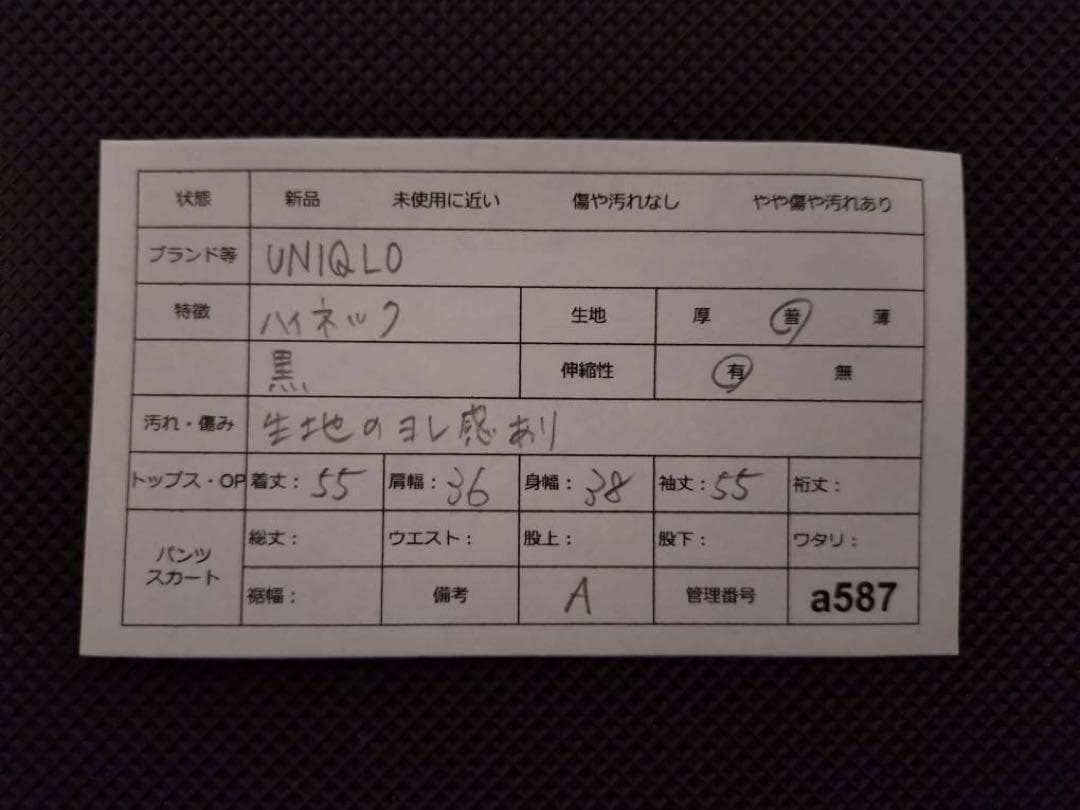 状態 新品 未使用に近い 傷や汚れなし やや傷や汚れあり
ブランド等 UNIQLO
特徴 ハイネック 生地 厚 普 薄
黒 伸縮性 有 無
汚れ・傷み 生地のヨレ感あり
トップス・OP 着丈：55 肩幅：36 身幅：38 袖丈：55 裄丈：
パンツ スカート 総丈： ウエスト： 股上： 股下： ワタリ：
裾幅： 備考 A 管理番号 a587